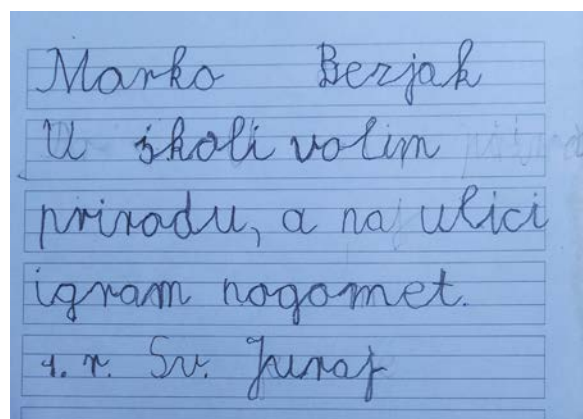 Marko Berjak
U školi volim
prirodu, a na ulici
igram nogomet.
1. r. Sv. Juraj